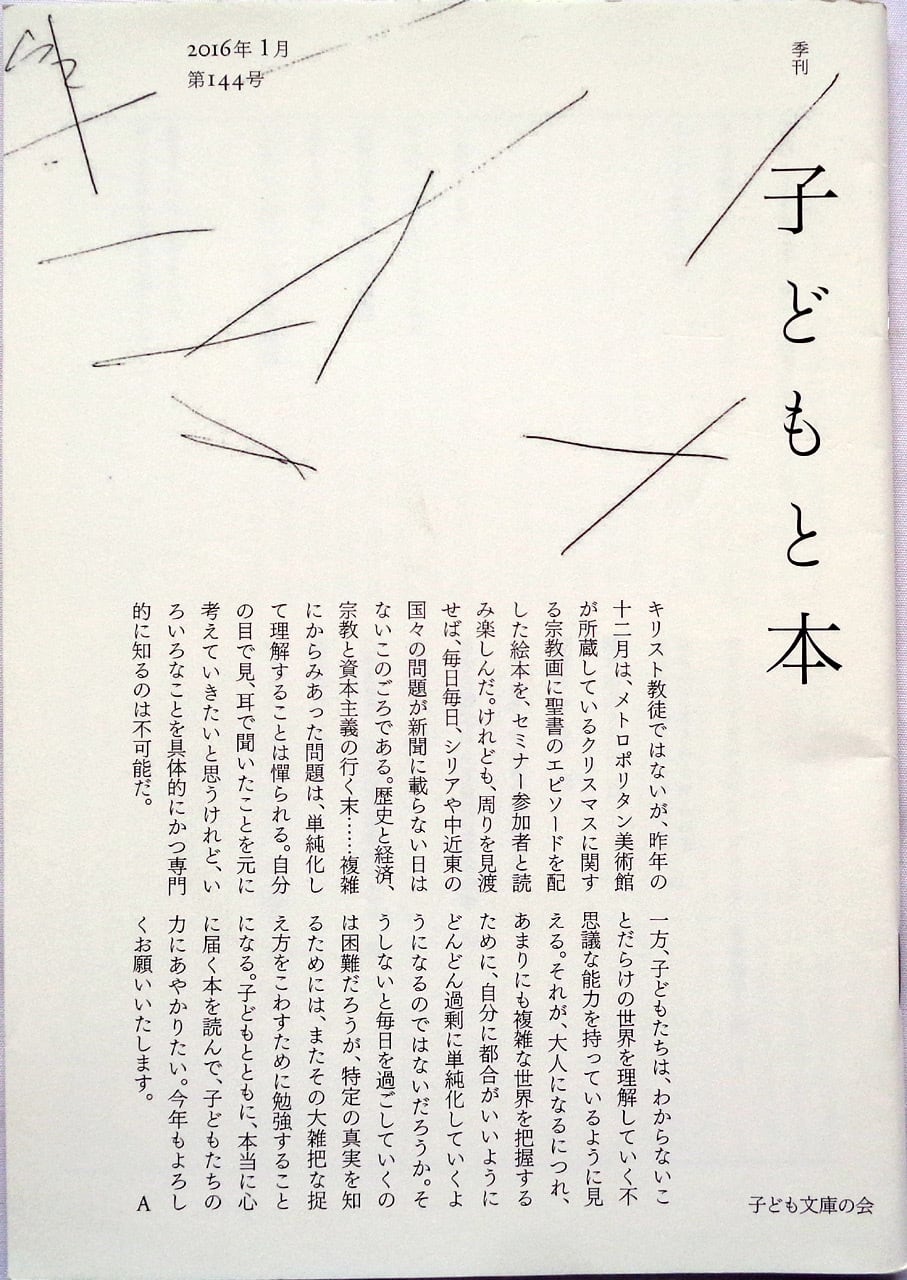 2016年 1月
第144号
季刊
子どもと本
キリスト教徒ではないが、昨年の
十二月は、メトロポリタン美術館
が所蔵しているクリスマスに関す
る宗教画に聖書のエピソードを配
した絵本を、セミナー参加者と読
み楽しんだ。けれども、周りを見渡
せば、毎日毎日、シリアや中近東の
国々の問題が新聞に載らない日は
ないこのごろである。歴史と経済、
宗教と資本主義の行く末……複雑
にからみあった問題は、単純化し
て理解することは憚られる。自分
の目で見、耳で聞いたことを元に
考えていきたいと思うけれど、い
ろいろなことを具体的にかつ専門
的に知るのは不可能だ。
一方、子どもたちは、わからないこ
とだらけの世界を理解していく不
思議な能力を持っているように見
える。それが、大人になるにつれ、
あまりにも複雑な世界を把握する
ために、自分に都合がいいように
どんどん過剰に単純化していくよ
うになるのではないだろうか。そ
うしないと毎日を過ごしていくの
は困難だろうが、特定の真実を知
るためには、またその大雑把な捉
え方をこわすために勉強すること
になる。子どもとともに、本当に心
に届く本を読んで、子どもたちの
力にあやかりたい。今年もよろし
くお願いいたします。
A
子ども文庫の会